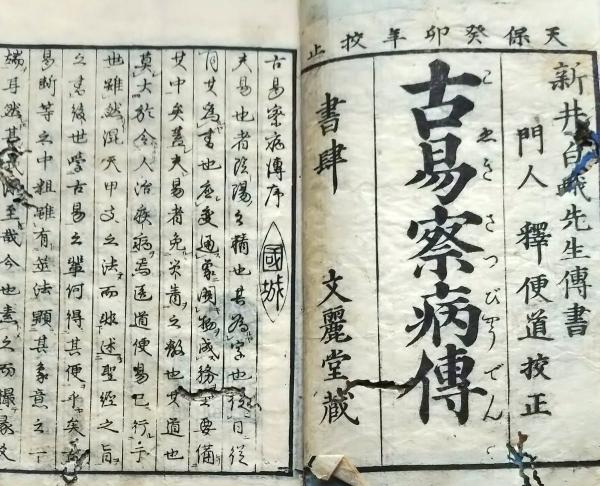 天保癸卯年挍正
新井白蛾先生傳書
門人 釋便道挍正
古易察病傳
こゑきさつびやうでん
書肆 文麗堂藏
古易察病傳序
國城
夫易也者陰陽之精也其為字也從日從
月其為書也應變通象開物成務之要備
其中矣蓋夫易者免災眚之教也其道也
莫大於令人治疾病焉医道便易已行于
世雖然混天甲支之法而非述聖經之旨
之書後世学古易之輩何得其便乎矣古
易断等之中粗雖有筮法顕其象意之一
端耳然其至哉今也之而撮象文